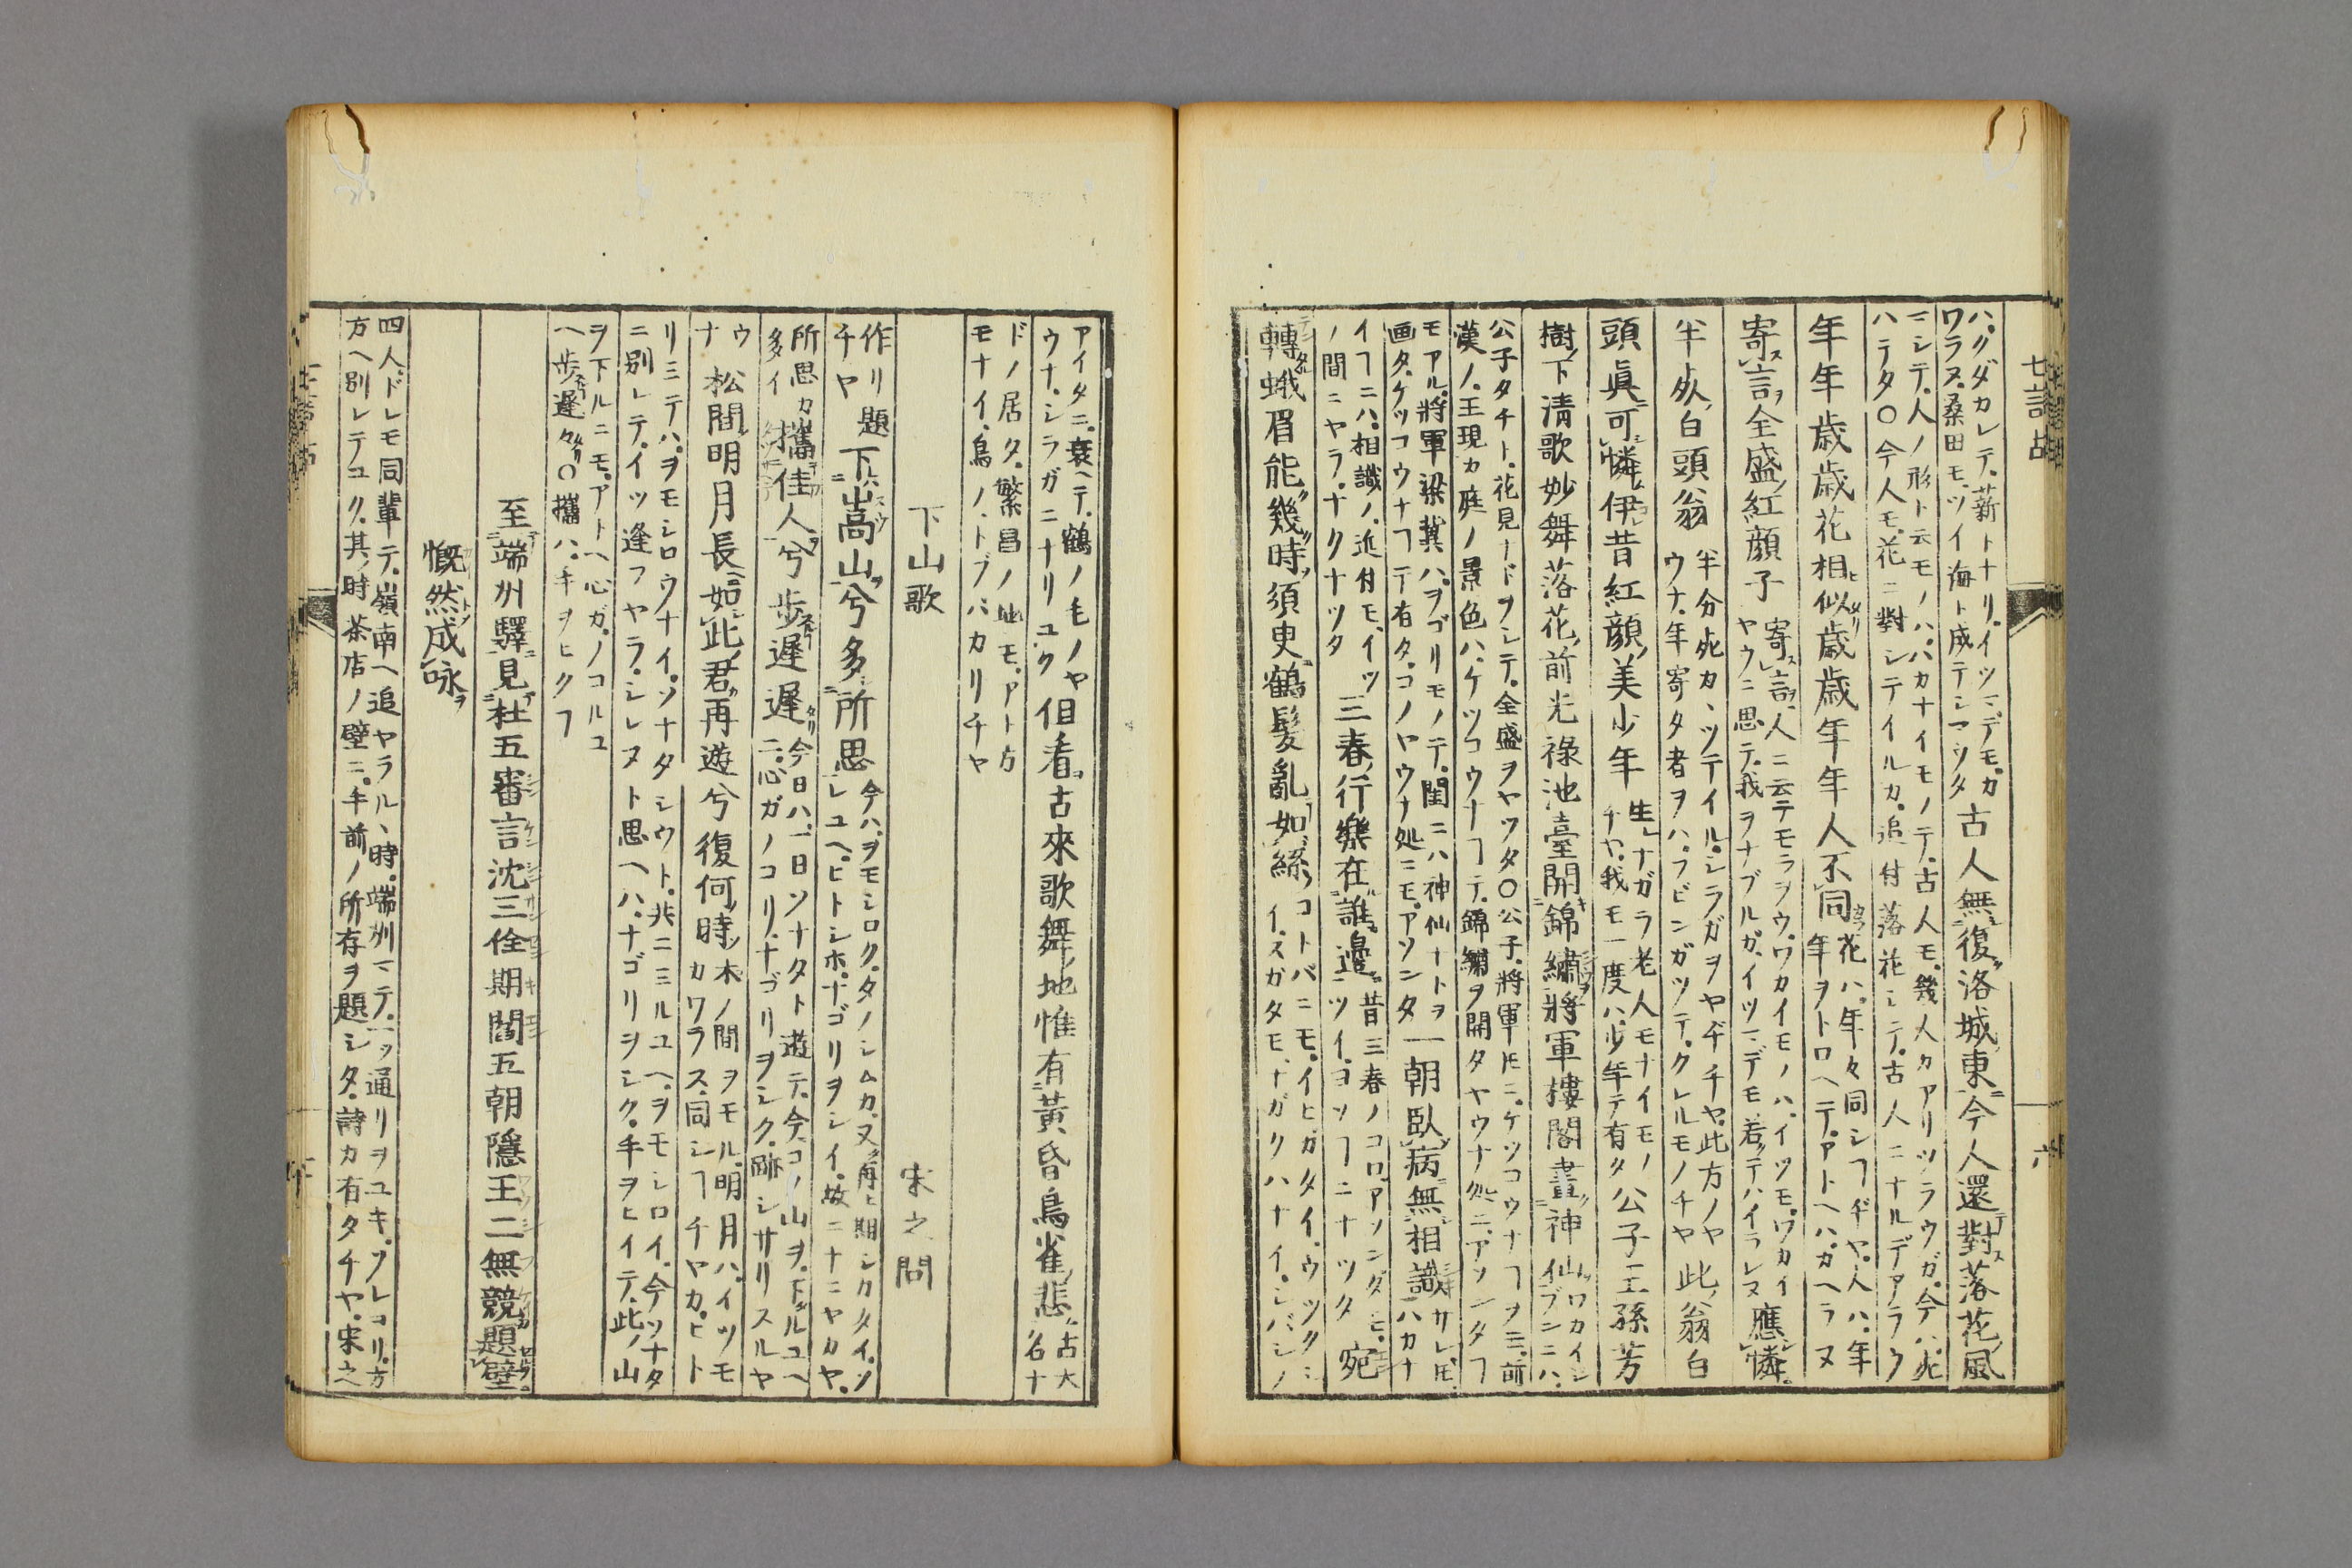 七言古
ハ。クダカレテ。薪トナリ。イツマデモ。カ
ワラヌ。桑田モ。ツイ海ト成テシマツタ
古人無復洛城東今人還對落花風
ニシテ。人ノ形ト云モノハ。ハカナイモノテ。古人モ。幾人カアリツラウガ。今ハ。死
ハテタ〇今人モ。花ニ對シテイルカ。追付落花シテ。古人ニナルデアラウ
年年歳歳花相似歳歳年年人不同
花ハ。年々同シヿヂヤ。人ハ。年
年ヲトロヘテ。アトヘハ。カヘラヌ
寄言全盛紅顔子
寄言。人ニ云テモラヲウ。ワカイモノハ。イツモ。ワカイ
ヤウニ思テ。我ヲナブルガ。イツマデモ若テハイラレヌ
應憐
半死白頭翁
半分死カヽツテイル。シラガヲヤヂチヤ。此方ノヤ
ウナ。年寄タ者ヲハ。フビンガツテ。クレルモノチヤ
此翁白
頭眞可憐伊昔紅顔美少年
生ナガラ老人モナイモノ
チヤ。我モ一度ハ。少年テ有タ
公子王孫芳
樹下清歌妙舞落花前光禄池臺開錦繍將軍樓閣畫神仙
ワカイシ
ブンニハ。
公子タチト。花見ナドヲシテ。全盛ヲヤツタ〇公子。將軍𪜈ニ。ケツコウナヿヲニ。前
漢ノ。王現カ庭ノ景色ハ。ケツコウナヿテ。錦繍ヲ開タヤウナ処ニ。アソンタヿ
モアル。將軍梁冀ハ。ヲゴリモノテ。閨ニハ神仙ナトヲ
画タ。ケツコウナヿテ有タ。コノヤウナ処ニモ。アソンタ
一朝臥病無相識
サレ𪜈。
ハカナ
イヿニハ。相識ノ。近付モ。イツ
ノ間ニヤラ。ナクナツタ
三春行樂在誰邉
昔三春ノコロ。アソンダモ。
ツイ。ヨソヿニナツタ
宛
轉蛾眉能幾時須臾鶴髪亂如絲
コトバニモ。イヒガタイ。ウツクシ
イ。スガタモ。ナガクハナイ。シバシノ
六
アイタニ。衰ヘテ。鶴ノ毛ノヤ
ウナ。シラガニナリユク
但看古來歌舞地惟有黃昏鳥雀悲
古大
名ナ
ドノ居タ。繁昌ノ地モ。アト方
モナイ。鳥ノ。トブバカリチヤ
下山歌
宋之問
作リ題
チヤ
下嵩山兮多所思
今ハ。ヲモシロク。タノシムカ。又再ヒ期シカタイ。ソ
レユヘ。ヒトシホ。ナゴリヲシイ。故ニナニヤカヤ。
所思カ
多イ
攜佳人兮步遲遲
今日ハ。一日ソナタト遊テ。今コノ山ヲ。下ルユヘ
ニ。心ガノコリ。ナゴリヲシク。跡シサリスルヤ
ウ
ナ
松間明月長如此君再遊兮復何時
木ノ間ヲモル。明月ハ。イツモ
カワラス。同シヿチヤカ。ヒト
リミテハ。ヲモシロウナイ。ソナタシウト。共ニミルユヘ。ヲモシロイ。今ソナタ
ニ別レテ。イツ逢フヤラ。シレヌト思ヘハ。ナゴリヲシク。手ヲヒイテ。此ノ山
ヲ下ルニモ。アトヘ心ガ。ノコルユ
ヘ歩遲々〇攜ハ。手ヲヒクヿ
至端州驛見杜五審言沈三佺期閻五朝隱王二無競題壁
慨然成咏
四人ドレモ同輩テ。嶺南ヘ追ヤラルヽ時。端州マテ。一ツ通リヲユキ。ソレヨリ。方
方ヘ別レテユク。其時茶店ノ壁ニ。手前ノ所存ヲ題シタ。詩カ有タチヤ。宋之